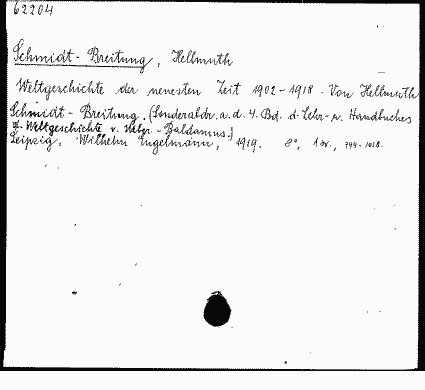 62204
Schmidt-Breitung, Hellmuth
Weltgeschichte der neuesten Zeit 1902-1918. Von Hellmuth
Schmidt-Breitung. (Sonderabdr. a. d. 4. Bd. d. Lehr- u. Handbuches
d. Weltgeschichte v. Weber-Baldamus.)
Leipzig, Wilhelm Engelmann, 1919. 8°, 794-1018.